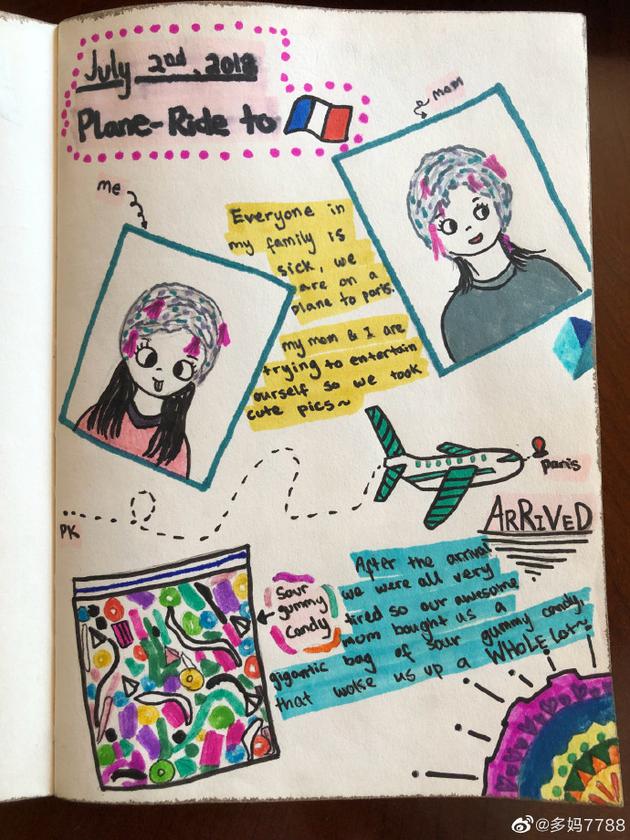 July 2nd, 2018
Plane-Ride to
mom
me
Everyone in
my family is
sick, we
are on a
plane to paris.
my mom & I are
trying to entertain
ourself so we took
cute pics~
paris
PK
ARRIVED
After the arrival
we were all very
tired so our awesome
mum bought us a
gigantic bag of sour gummy candy.
that woke us up a WHOLE lot~
sour
gummy
candy
@多妈7788